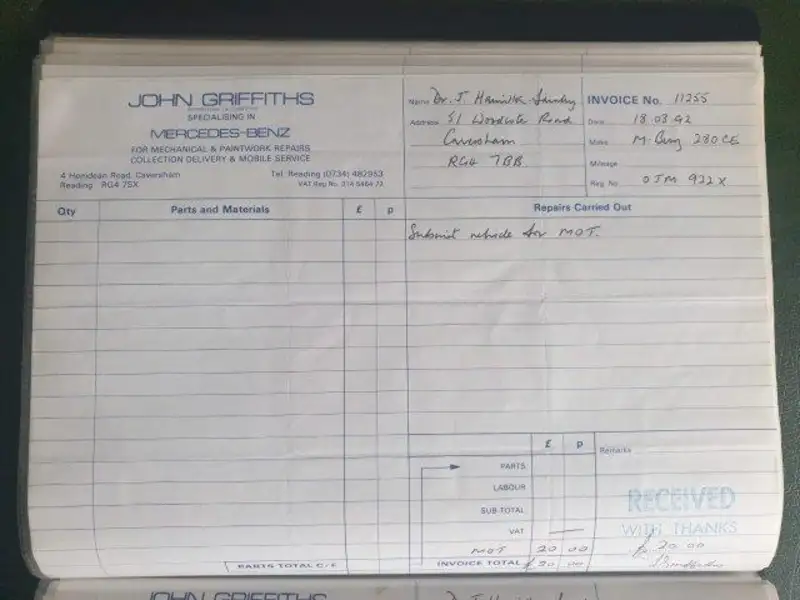 JOHN GRIFFITHS
SPECIALISING IN
MERCEDES-BENZ
FOR MECHANICAL & PAINTWORK REPAIRS
COLLECTION DELIVERY & MOBILE SERVICE
4 Horidean Road, Caversham
Reading RG4 7SX
Tel. Reading (0734) 482953
VAT Reg No. 314 5464 73
Name Dr. J.
Address 51 Woodcote Road
Caversham
RG4 7BB
INVOICE No. 11255
Date 18.03.92
Make M. Benz 280CE
Mileage
Reg. No. OJM 922X
Qty Parts and Materials £ p Repairs Carried Out
Submit vehicle for MOT.
£ p
Remarks
PARTS
LABOUR
SUB-TOTAL
VAT —
MOT 20 00
PARTS TOTAL C/F
INVOICE TOTAL £20 00
RECEIVED
WITH THANKS
£20 00
JOHN GRIFFITHS